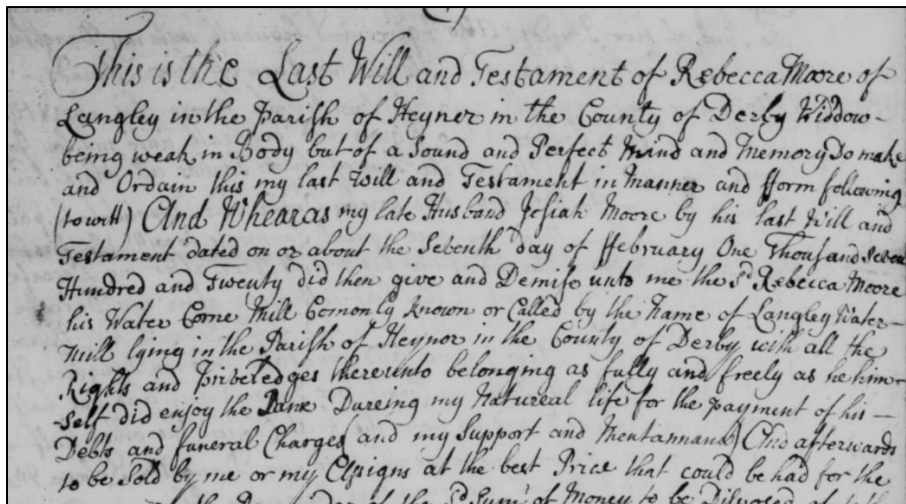 This is the Last Will and Testament of Rebecca Moore of
Langley in the Parish of Heyner in the County of Derby Widdow -
being weak in Body but of a Sound and Perfect Mind and Memory Do make
and Ordain this my last Will and Testament in Manner and fform following
(to witt) And Whearas my late Husband Josiah Moore by his last Will and
Testament dated on or about the Seventh day of ffebruary One Thousand Seven
Hundred and Twenty did then give and Demise unto me the Sd Rebecca Moore
his Water Corne Mill Comonly known or Called by the Name of Langley Water -
Mill lying in the Parish of Heynor in the County of Derby with all the
Rights and Priveledges thereunto belonging as fully and freely as he him -
Self did enjoy the Same Dureing my Natureal life for the payment of his -
Debts and funeral Charges and my Support and Mentannance And afterwards
to be Sold by me or my Assigns at the best Price that could be had for the
the Sd Sum of Money to be